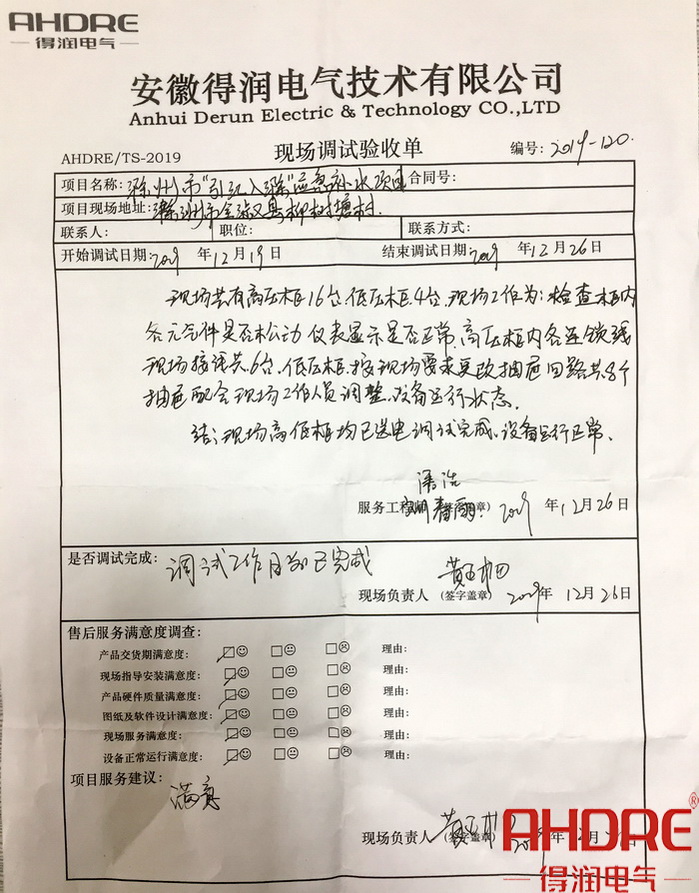 AHDRE
得润电气
安徽得润电气技术有限公司
Anhui Derun Electric & Technology CO.,LTD
AHDRE/TS-2019 现场调试验收单 编号：2019-120
项目名称：滁州市"引江入滁"应急补水项目 合同号：
项目现场地址：滁州市全椒县柳树塘村
联系人： 职位： 联系方式：
开始调试日期：2019 年 12 月 19 日 结束调试日期：2019 年 12 月 26 日
现场共有高压柜16台，低压柜4台，现场工作为：检查柜内
各元气件是否松动，仪表显示是否正常，高压柜内各连锁线
现场接线共6台，低压柜，按现场要求更改抽屉回路共8个
抽屉，配合现场工作人员调整，设备运行状态。
结：现场高低柜均已送电调试完成，设备运行正常。
服务工程师 盖章） 2019 年 12 月 26 日
是否调试完成：调试工作目前已完成
现场负责人 （签字盖章） 2019 年 12 月 26 日
售后服务满意度调查：
产品交货期满意度： 理由：
现场指导安装满意度： 理由：
产品硬件质量满意度： 理由：
图纸及软件设计满意度： 理由：
现场服务满意度： 理由：
设备正常运行满意度： 理由：
项目服务建议：
满意
现场负责人 （签字盖章） 年 月 日
AHDRE®
得润电气